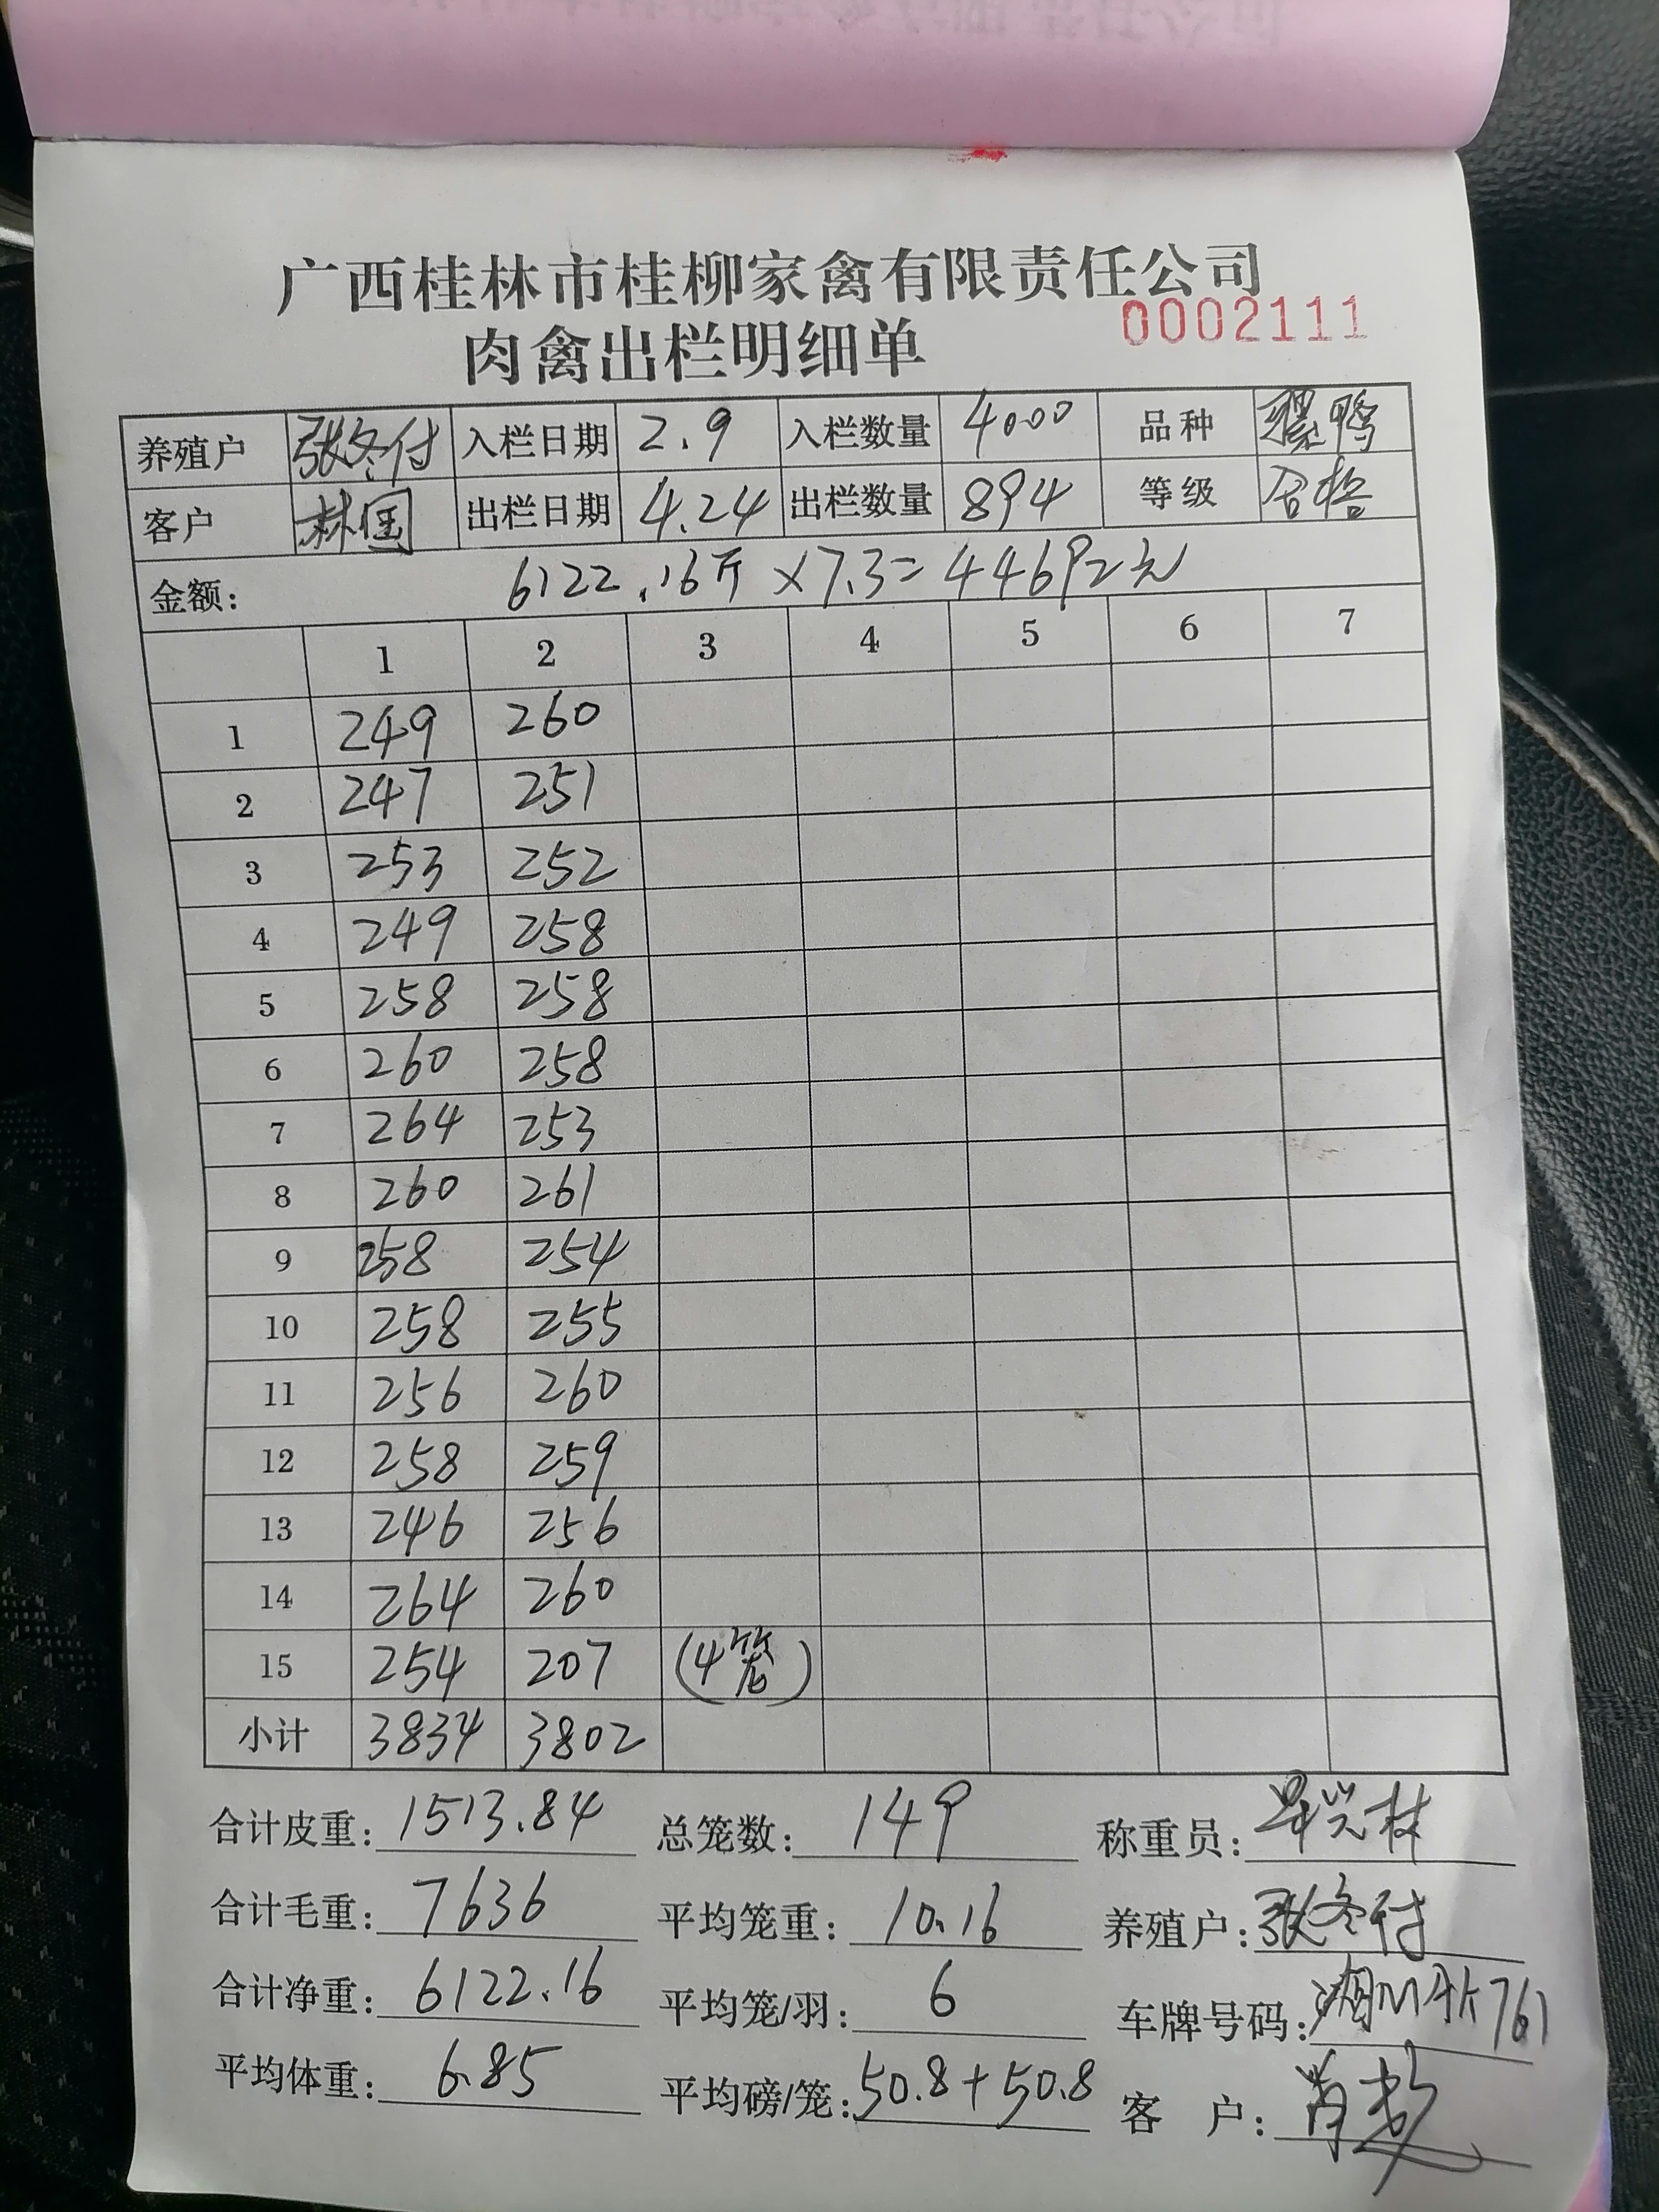 广西桂林市桂柳家禽有限责任公司
肉禽出栏明细单 0002111
养殖户 张冬付 入栏日期 2.9 入栏数量 4000 品种 骡鸭
客户 林国 出栏日期 4.24 出栏数量 894 等级 合格
金额: 6122.16斤×7.3=44692元
1 2 3 4 5 6 7
1 249 260
2 247 251
3 253 252
4 249 258
5 258 258
6 260 258
7 264 253
8 260 261
9 258 254
10 258 255
11 256 260
12 258 259
13 246 256
14 264 260
15 254 207 (4笼)
小计 3834 3802
合计皮重: 1513.84 总笼数: 149 称重员:
合计毛重: 7636 平均笼重: 10.16 养殖户: 张冬付
合计净重: 6122.16 平均笼/羽: 6 车牌号码:
平均体重: 6.85 平均磅/笼: 50.8+50.8 客 户: